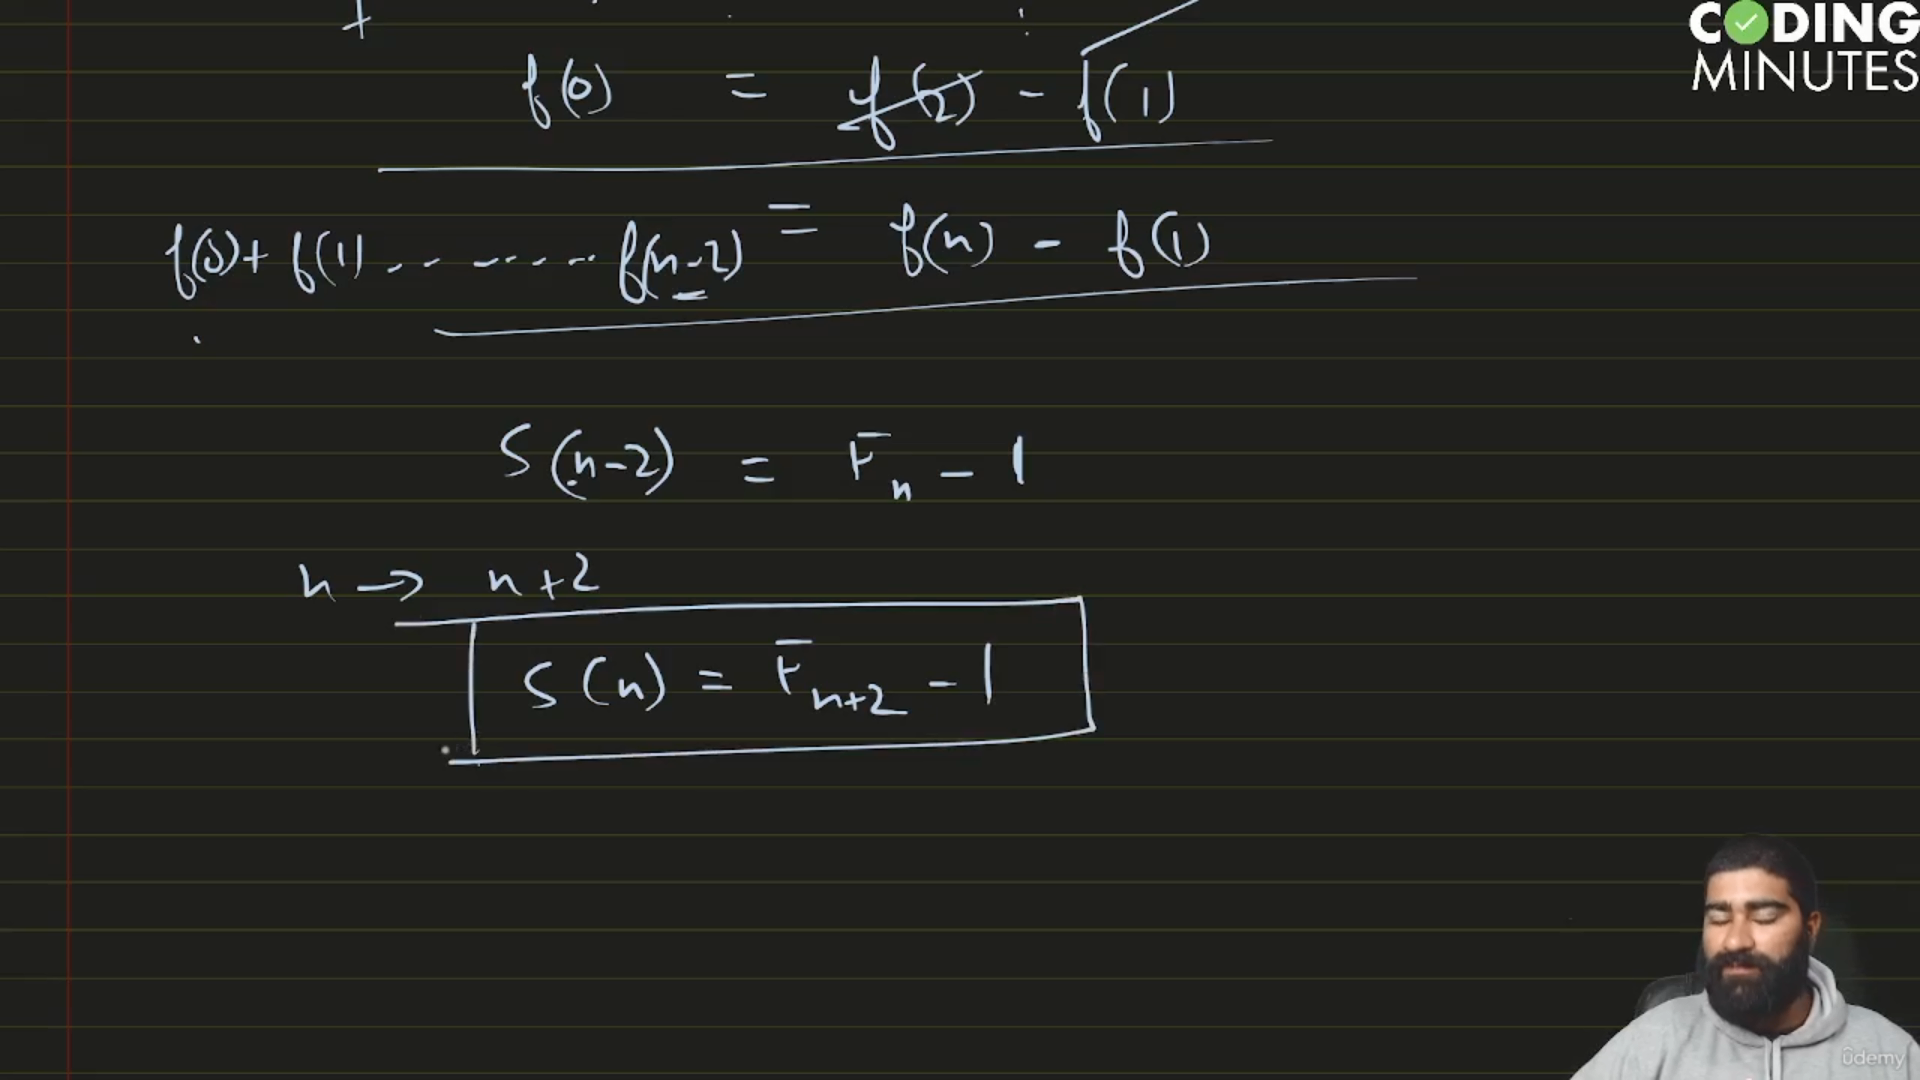 CODING
MINUTES
+
f(0) = f(2) - f(1)
f(0) + f(1) ......... f(n-2) = f(n) - f(1)
S(n-2) = Fn - 1
n → n+2
S(n) = Fn+2 - 1
ûdemy